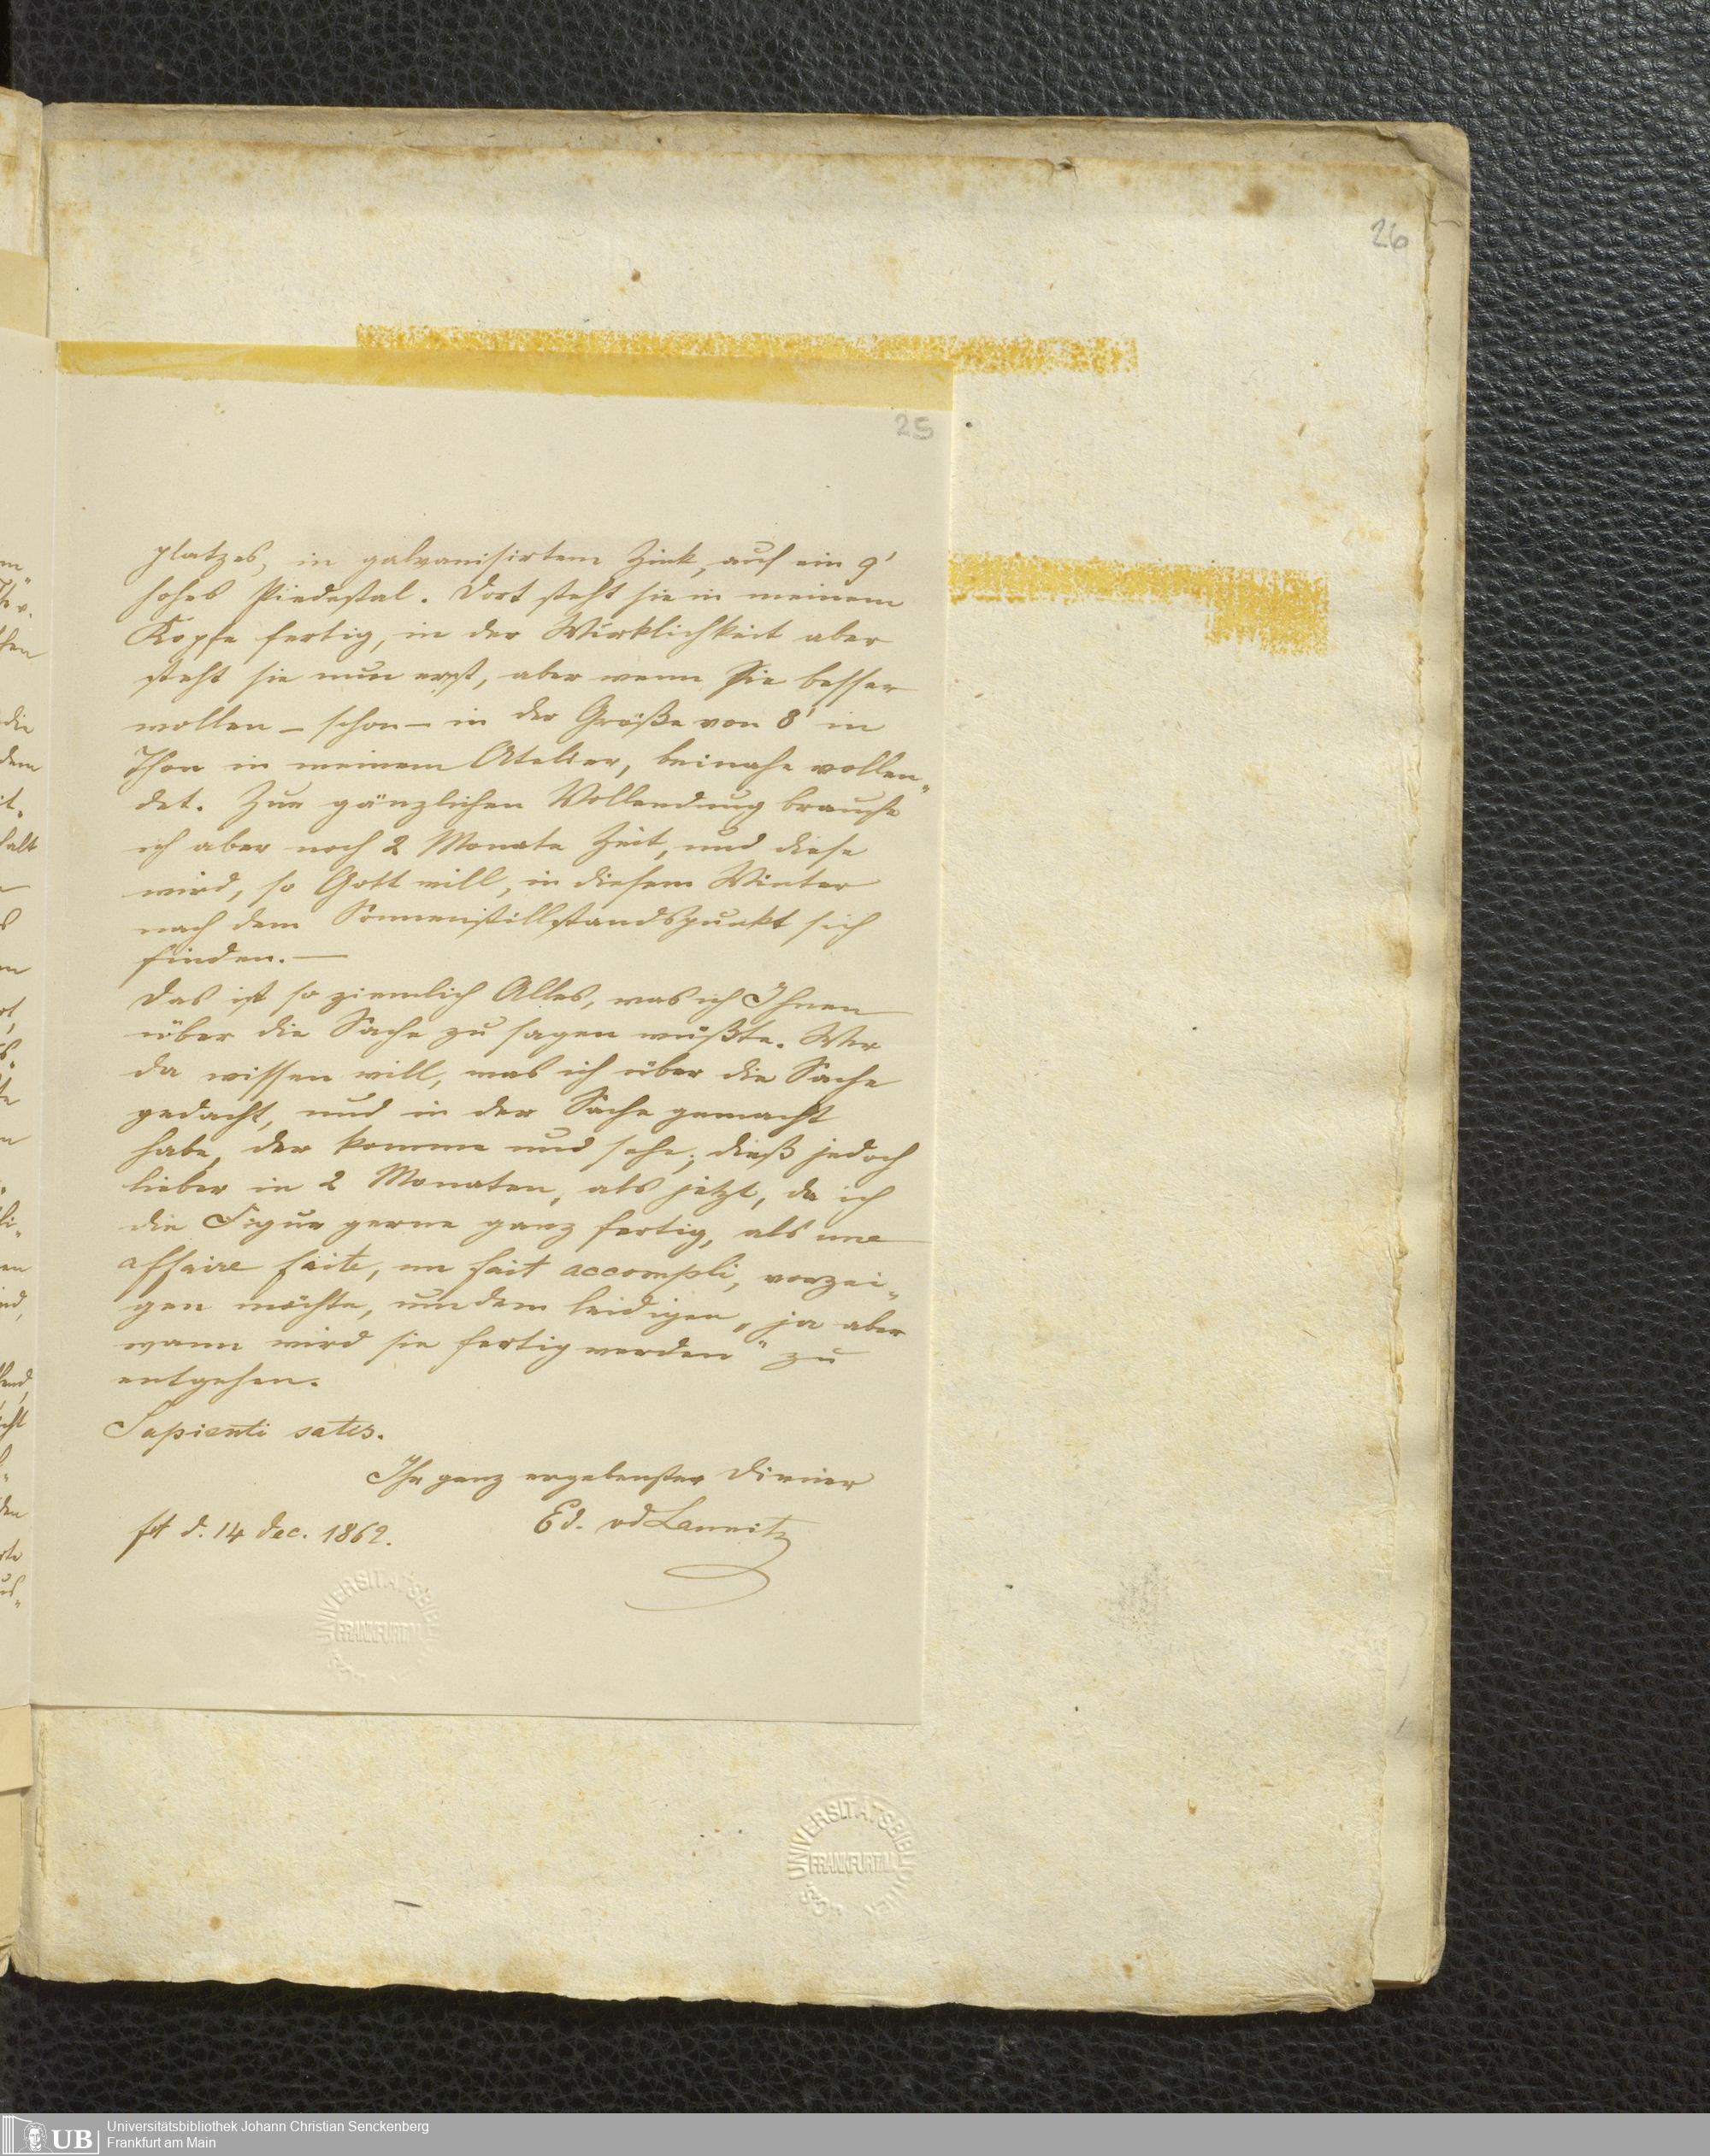 26
25
platzes, in galvanisirtem Zink, auf ein 9'
hohes Piedestal. Dort steht sie in meinem
Kopfe fertig, in der Wirklichkeit aber
steht sie nun erst, aber wenn Sie besser
wollen – schon – in der Größe von 8' in
Thon in meinem Atelier, beinahe vollen„
det. Zur gänzlichen Vollendung brauche
ich aber noch 2 Monate Zeit, und diese
wird, so Gott will, in diesem Winter
nach dem Sonnenstillstandspunkt sich
finden. —
Das ist so ziemlich Alles, was ich Ihnen
über die Sache zu sagen wüßte. Wer
da wissen will, was ich über die Sache
gedacht, und in der Sache gemacht
habe, der komme und sehe; dieß jedoch
lieber in 2 Monaten, als jetzt, da ich
die Figur gerne ganz fertig, als une
affaire faite, un fait accompli, vorzei„
gen möchte, um dem leidigen „ja aber
wann wird sie fertig werden" zu
entgehen.
Sapienti satis.
Ihr ganz ergebenster Diener
Ed. vd Launitz
fft d. 14 dec. 1862.
UNIVERSITÄTSBIB
FRANKFURT
UNIVERSITÄTSBIBLIOTHEK
FRANKFURT M.
UB
Universitätsbibliothek Johann Christian Senckenberg
Frankfurt am Main